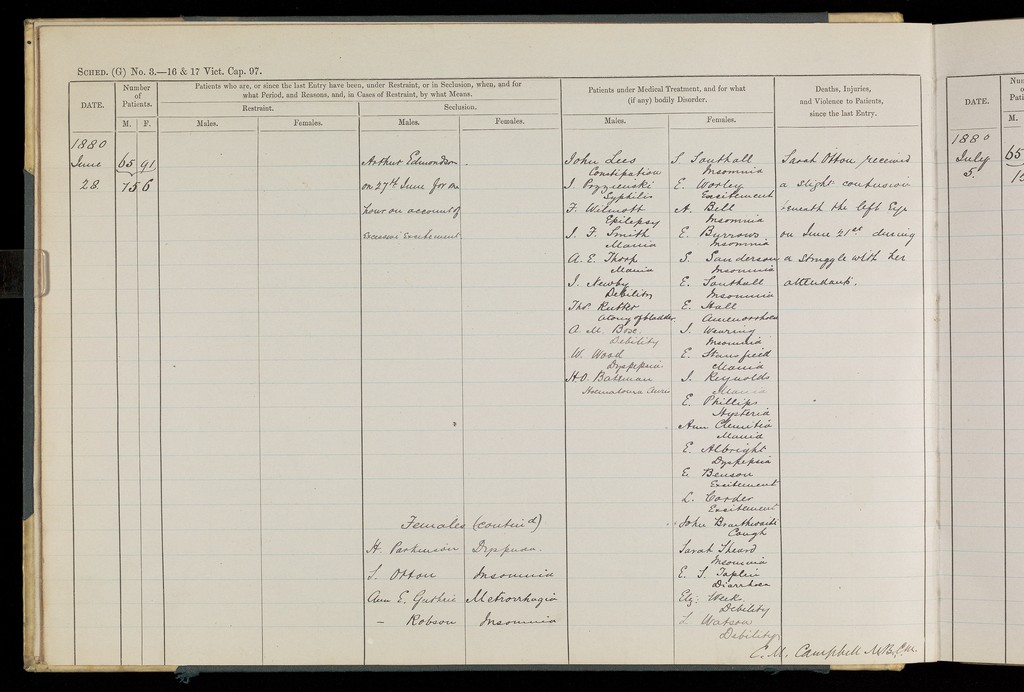 SCHED. (G) No. 3.—16 & 17 Vict. Cap. 97.
DATE.
Number of Patients.
M. F.
Patients who are, or since the last Entry have been, under Restraint, or in Seclusion, when, and for
what Period, and Reasons, and, in Cases of Restraint, by what Means.
Restraint.
Seclusion.
Males.
Females.
Males.
Females.
Patients under Medical Treatment, and for what
(if any) bodily Disorder.
Males.
Females.
Deaths, Injuries,
and Violence to Patients,
since the last Entry.
1880
June 65 91
28 156
Arthur Edmondson
on 27th June for one
hour on account of
Excessive Excitement
John Lees
Constipation
Syphilis
F. Wilmott
Epilepsy
J. F. Smith
Mania
A. E. Thorp
Mania
J. Newby
Debility
Thos Rutter
Atony of bladder
A. M. Bose
Debility
W. Wood
Dyspepsia
H. O. Bateman
Haematoma Auris
S. Southall
Insomnia
E. Worley
Excitement
A. Bell
Insomnia
E. Burrows
Insomnia
S. Sanderson
Insomnia
E. Southall
Insomnia
E. Hall
Amenorrhoea
J. Wearing
Insomnia
E. Stansfield
Mania
J. Reynolds
Mania
E. Phillips
Hysteria
Ann
Mania
E. Albright
Dyspepsia
E. Benson
Excitement
L. Corder
Excitement
John Braithwaite
Cough
Sarah Sheard
Insomnia
E. S. Taplin
Diarrhoea
Eliz: Week
Debility
L Watson
Debility
Females (contind)
H. Parkinson
S. Otton Insomnia
Ann E. Guthrie Metrorrhagia
— Robson Insomnia
Sarah Otton received
a slight contusion
beneath the left Eye
on June 21st during
a struggle with her
attendants.
C. M. Campbell M.B.C.M.
DATE.
M.
1880
July 65
5.